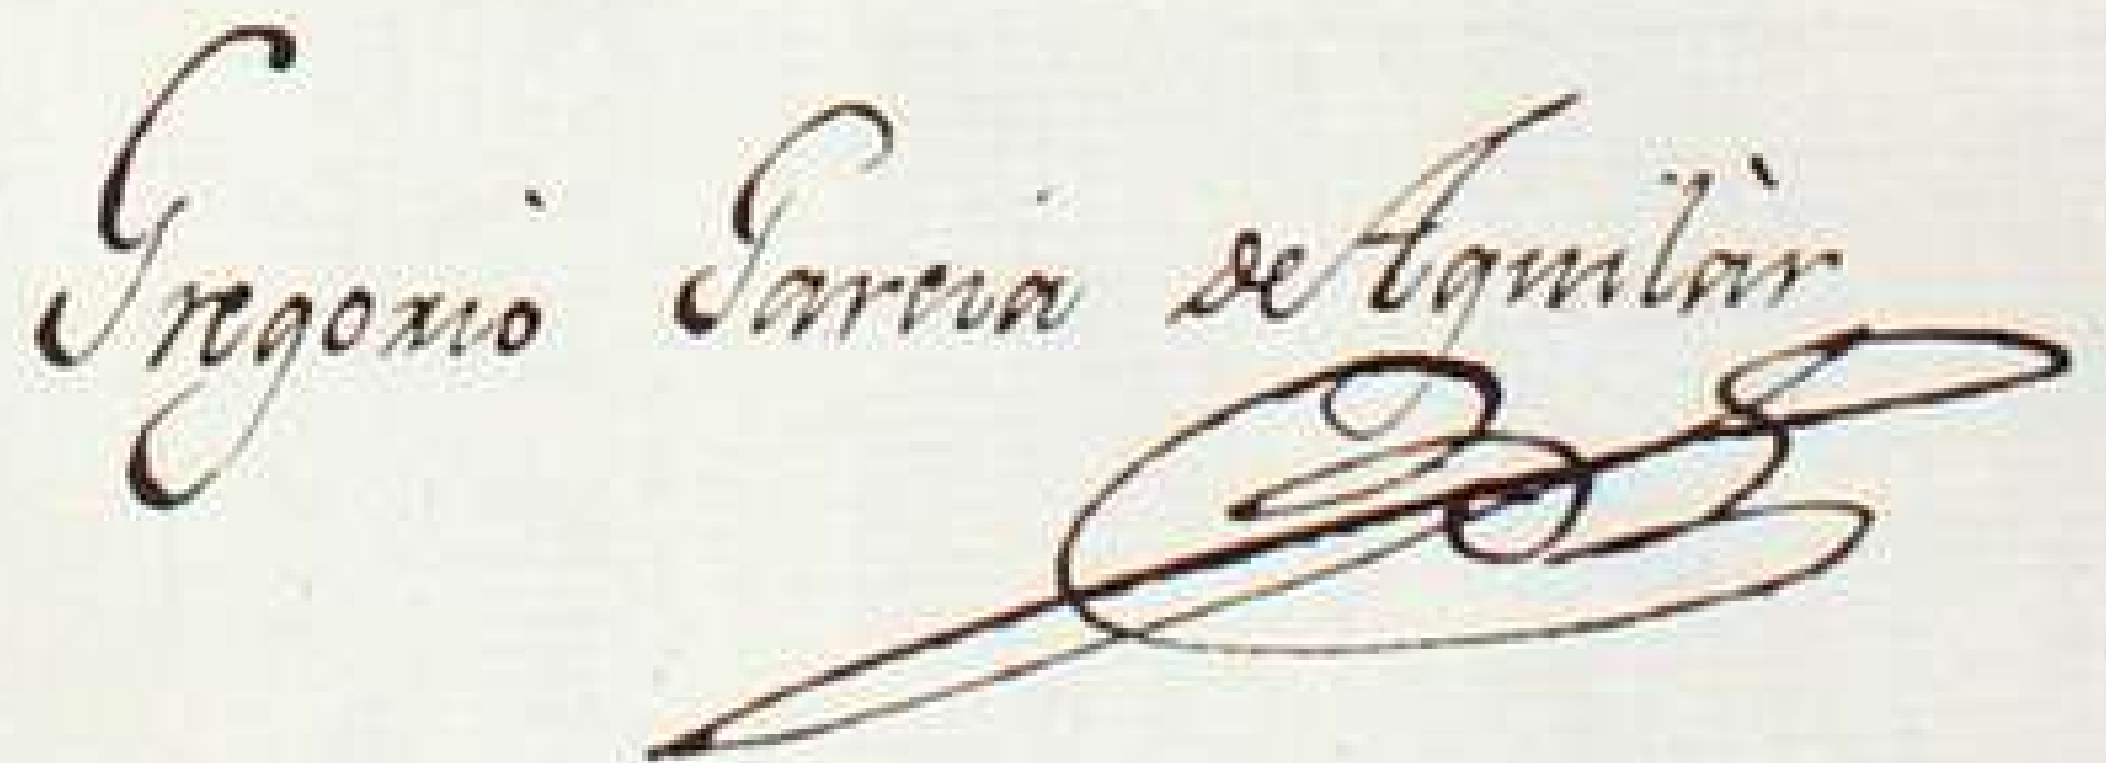 Gregorio Garcia de Aguilar